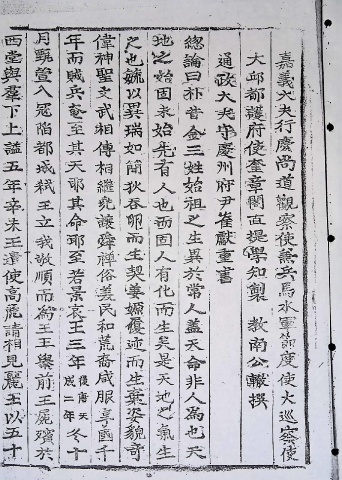 嘉義大夫行慶尚道觀察使兼兵馬水軍節度使大巡察使
大邱都護府使奎章閣直提學知製 教南公轍撰
通政大夫守慶州府尹崔獻重書
總論曰朴昔金三姓始祖之生異於常人盖天命非人爲也天
地之始固未始先有人也而固人有化而生矣是天地之氣生
之也毓以異瑞如簡狄吞卵而生契姜嫄履迹而生棄姿貌奇
偉神聖文武相傳相繼堯讓舜禪俗美民和荒裔咸服享國千
年而賊兵奄至其天耶其命耶至若景哀王三年後唐天成二年冬十
月甄萱入寇陷都城弑王立我敬順而爲王王舉前王屍殯於
西堂與羣下上謚五年辛未王遣使高麗請相見麗王以五十